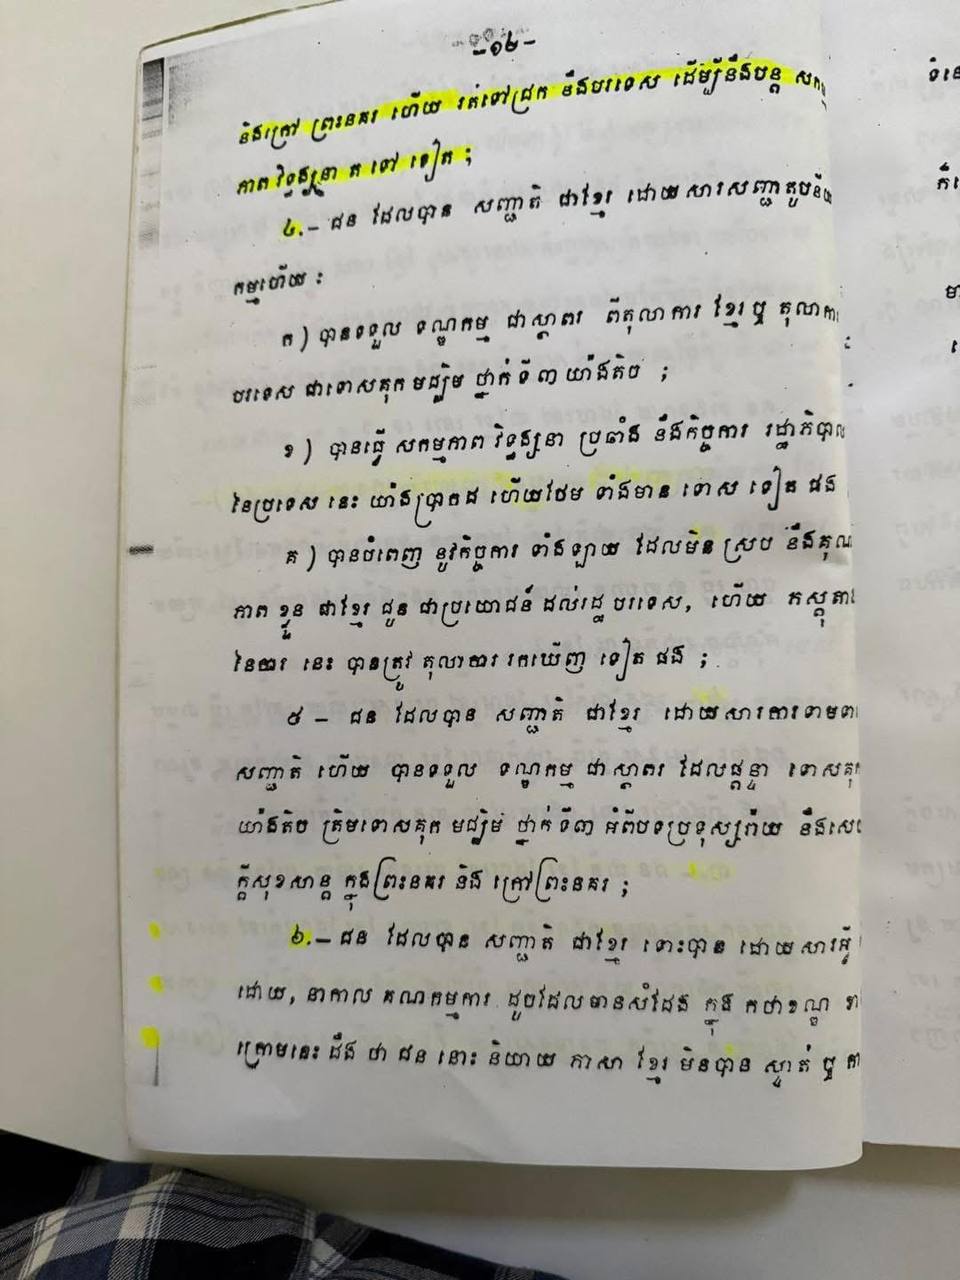 -១៤-
និងក្រៅ ព្រះនគរ ហើយ រត់ទៅជ្រក នឹងបរទេស ដើម្បីនឹងបន្ត សកម្ម
ភាព វិទ្ធង្សនា ត ទៅ ទៀត ;
៤.- ជន ដែលបាន សញ្ជាតិ ជាខ្មែរ ដោយសារសញ្ជាតូបនីយ
កម្មហើយ :
ក ) បានទទួល ទណ្ឌកម្ម ជាស្ថាពរ ពីតុលាការ ខ្មែរឬ តុលាការ
បរទេស ជាទោសគុកមជ្ឈិម ថ្នាក់ ទី ៣ យ៉ាងតិច ;
ខ ) បានធ្វើ សកម្មភាព វិទ្ធង្សនា ប្រឆាំង នឹងកិច្ចការ រដ្ឋាភិបាល
នៃប្រទេស នេះ យ៉ាងប្រាកដ ហើយថែម ទាំងមាន ទោស ទៀត ផង
គ ) បានបំពេញ នូវកិច្ចការ ទាំងឡាយ ដែលមិនស្រប នឹងគុណ
ភាព ខ្លួន ជាខ្មែរ ជូន ជាប្រយោជន៍ ដល់រដ្ឋ បរទេស, ហើយ ភស្តុតាង
នៃការ នេះ បានត្រូវ តុលាការ រកឃើញ ទៀត ផង ;
៥ - ជន ដែលបាន សញ្ជាតិ ជាខ្មែរ ដោយសារការទាមទារ
សញ្ជាតិ ហើយ បានទទួល ទណ្ឌកម្ម ជាស្ថាពរ ដែលផ្តន្ទា ទោសគុក
យ៉ាងតិច ត្រឹមទោសគុក មជ្ឈិម ថ្នាក់ ទី៣ អំពីបទប្រទុស្សរ៉ាយ នឹងសេច
ក្តីសុខសាន្ត ក្នុងព្រះនគរ និង ក្រៅព្រះនគរ ;
៦.- ជន ដែលបាន សញ្ជាតិ ជាខ្មែរ ទោះបាន ដោយសារអ្វី
ដោយ, នាកាល គណកម្មការ ដូចដែលមានសំដែង ក្នុង កថាខណ្ឌ ខាង
ក្រោមនេះ ដឹង ថា ជន នោះ និយាយ ភាសា ខ្មែរ មិនបាន ស្ទាត់ ឬ